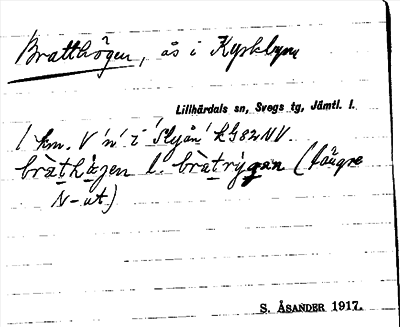 Bratthögen, ås i Kyrkbyn
Lillhärdals sn, Svegs tg, Jämtl. l.
1 km. V 'n' i 'Slyån' kG82NV.
bràthö̀gen l. bràtrýgan (längre
N-ut.)
S. ÅSANDER 1917.